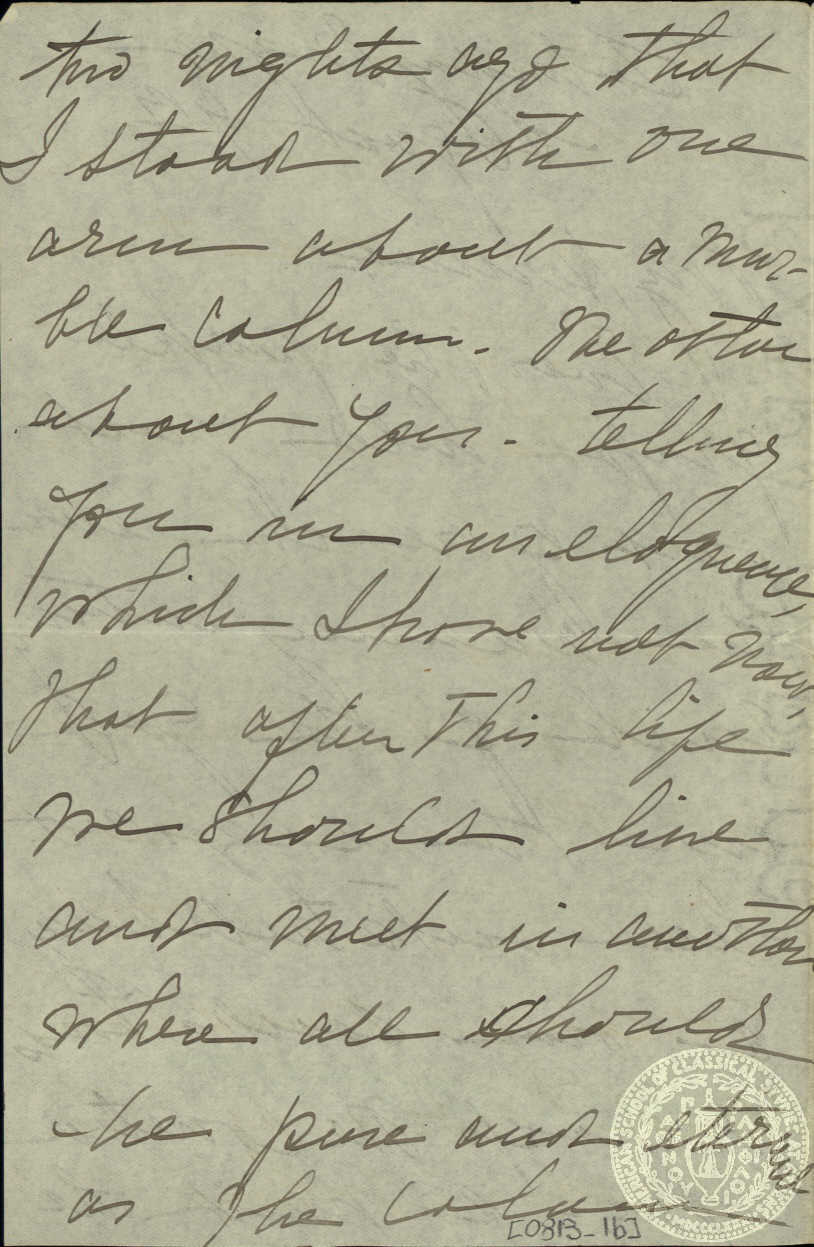 two nights ago that
I stood with one
arm about a mar-
ble column. The other
about you - telling
you in an eloquence,
which I have not now,
that after this life
we should live
and meet in another
where all should
be pure and eternal
as the column
[0813_1b]
AMERICAN SCHOOL OF CLASSICAL STUDIES